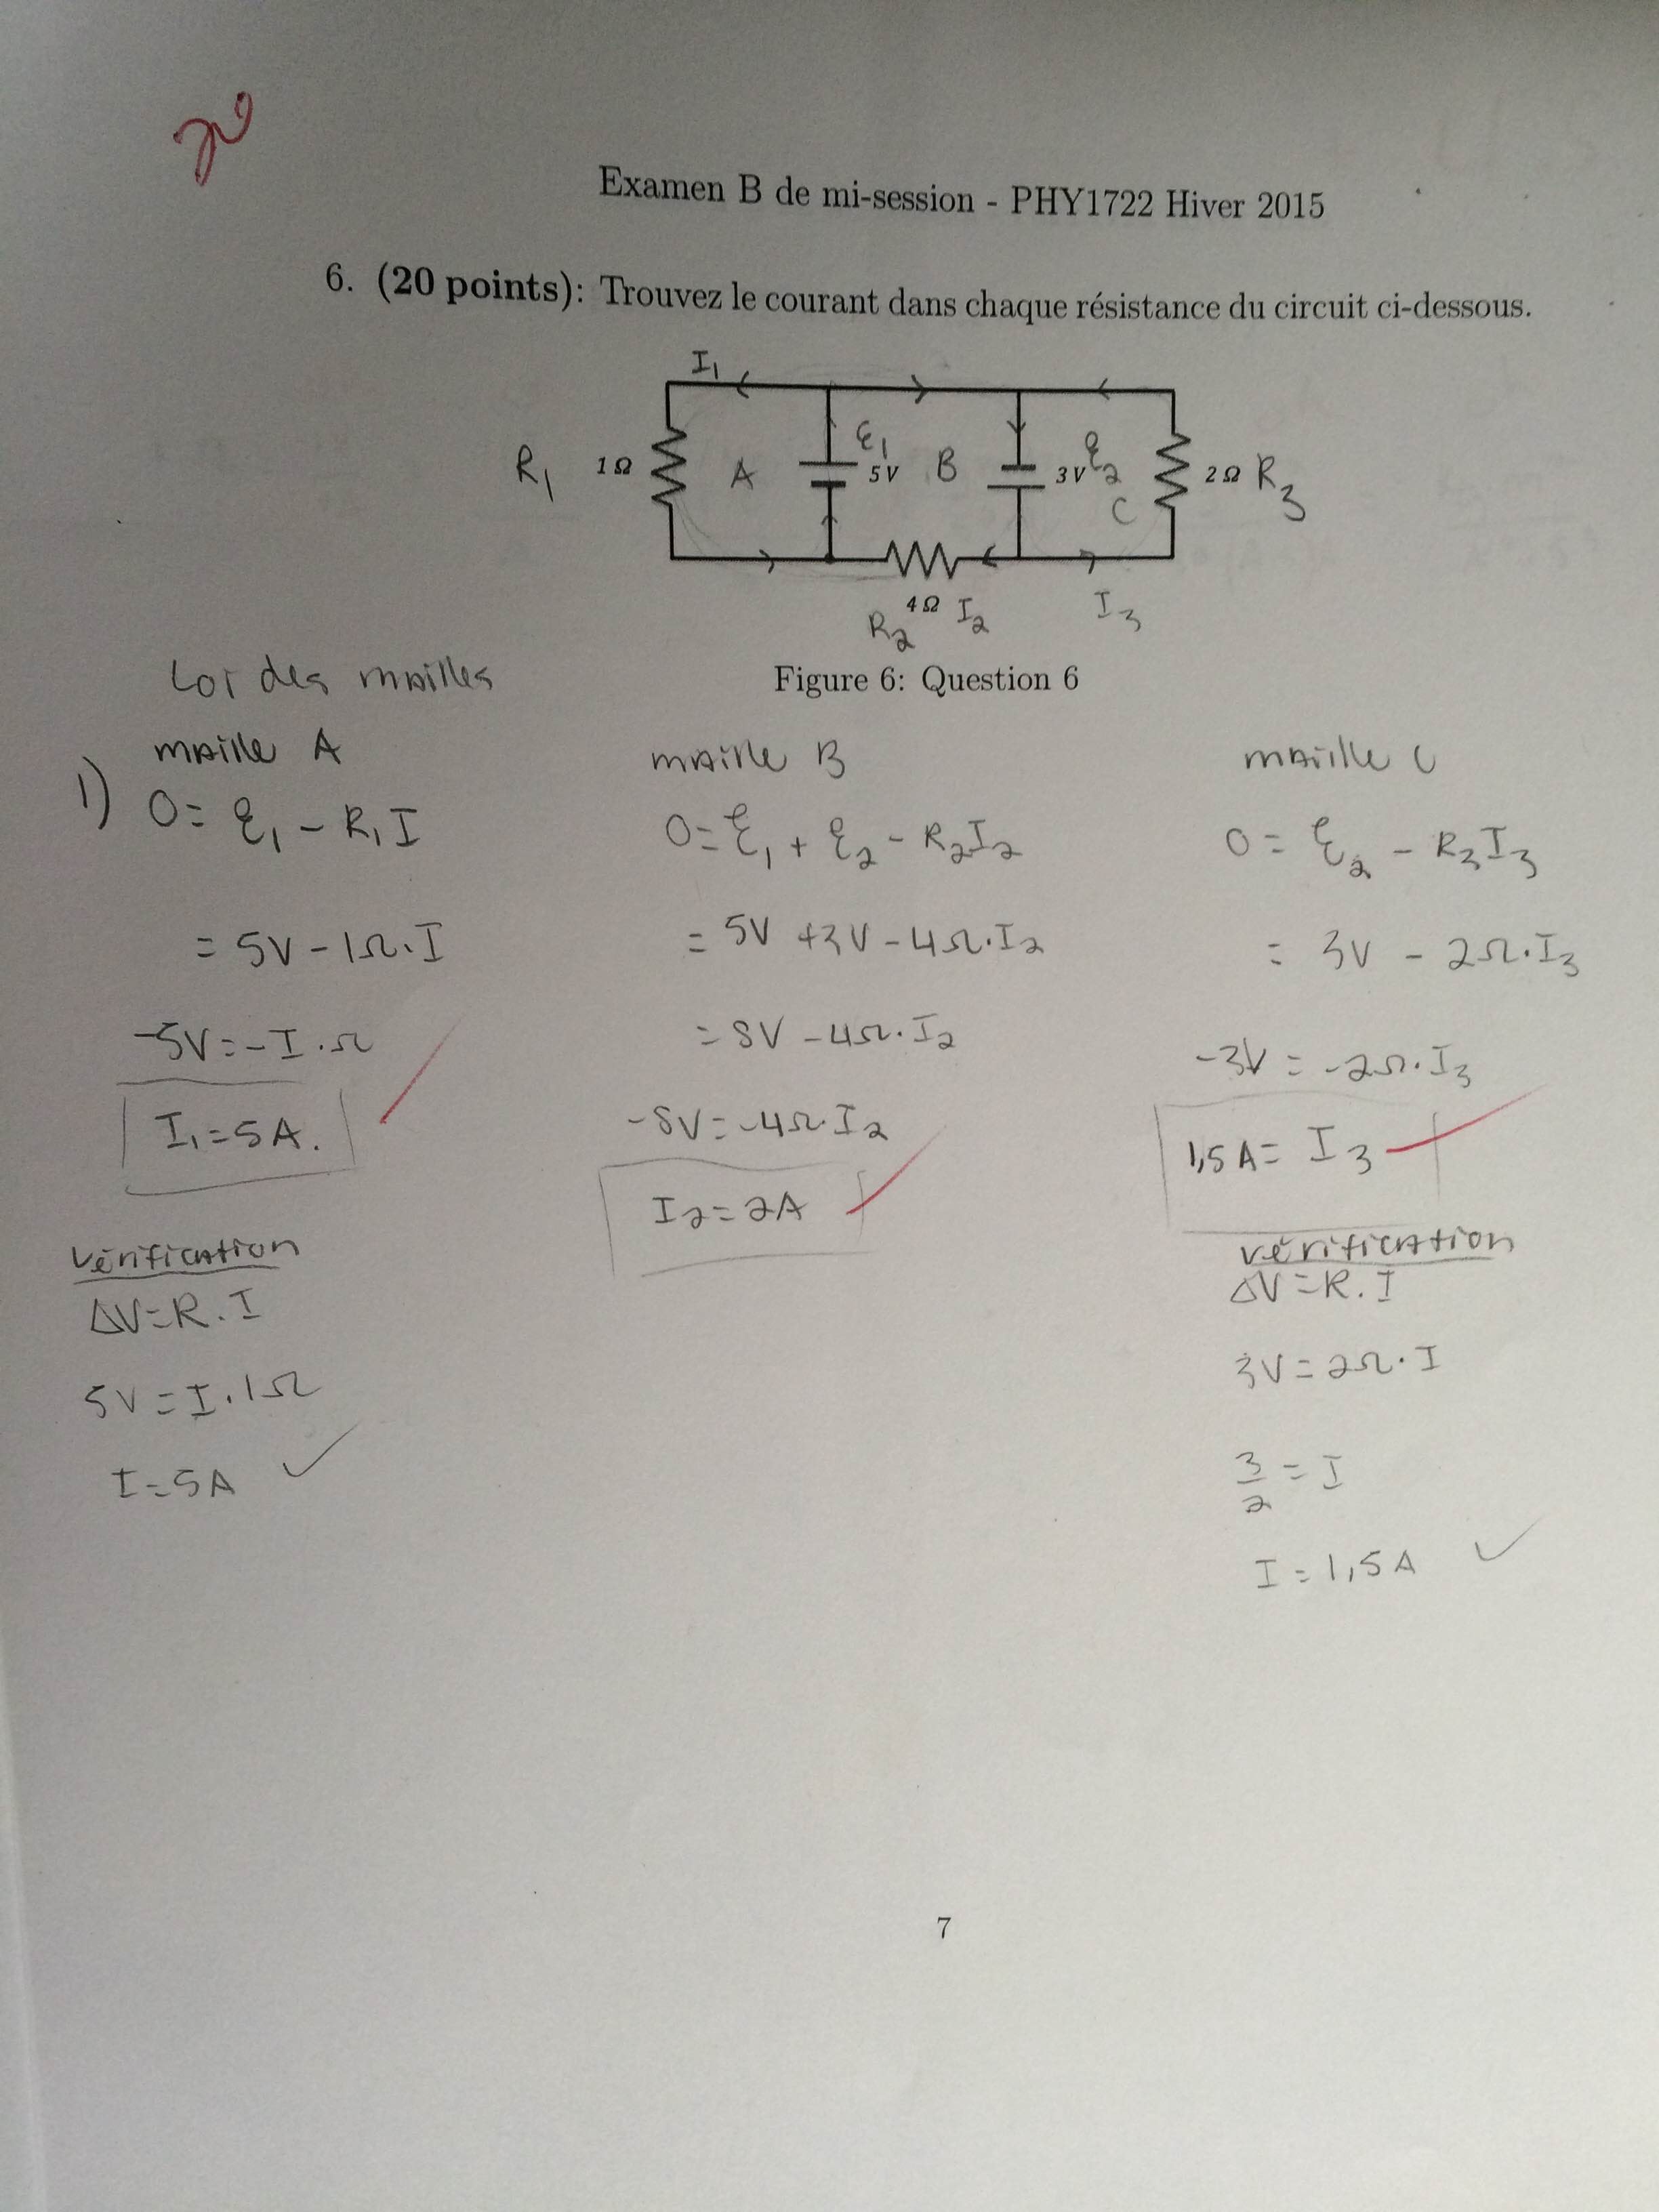 20
Examen B de mi-session - PHY1722 Hiver 2015
6. (20 points): Trouvez le courant dans chaque résistance du circuit ci-dessous.
I₁
R₁ 1Ω A ℰ₁ 5V B 3V ℰ₂ C 2Ω R₃
4Ω R₂ I₂ I₃
Figure 6: Question 6
Loi des mailles
maille A
1) 0 = ℰ₁ - R₁I
= 5V - 1Ω·I
-5V = -I·Ω
I₁ = 5A.
Vérification
ΔV = R.I
5V = I.1Ω
I = 5A ✓
maille B
0 = ℰ₁ + ℰ₂ - R₂I₂
= 5V + 3V - 4Ω·I₂
= 8V - 4Ω·I₂
-8V = -4Ω·I₂
I₂ = 2A
maille C
0 = ℰ₂ - R₃I₃
= 3V - 2Ω·I₃
-3V = -2Ω·I₃
1,5A = I₃
vérification
ΔV = R.I
3V = 2Ω·I
3/2 = I
I = 1,5A ✓
7